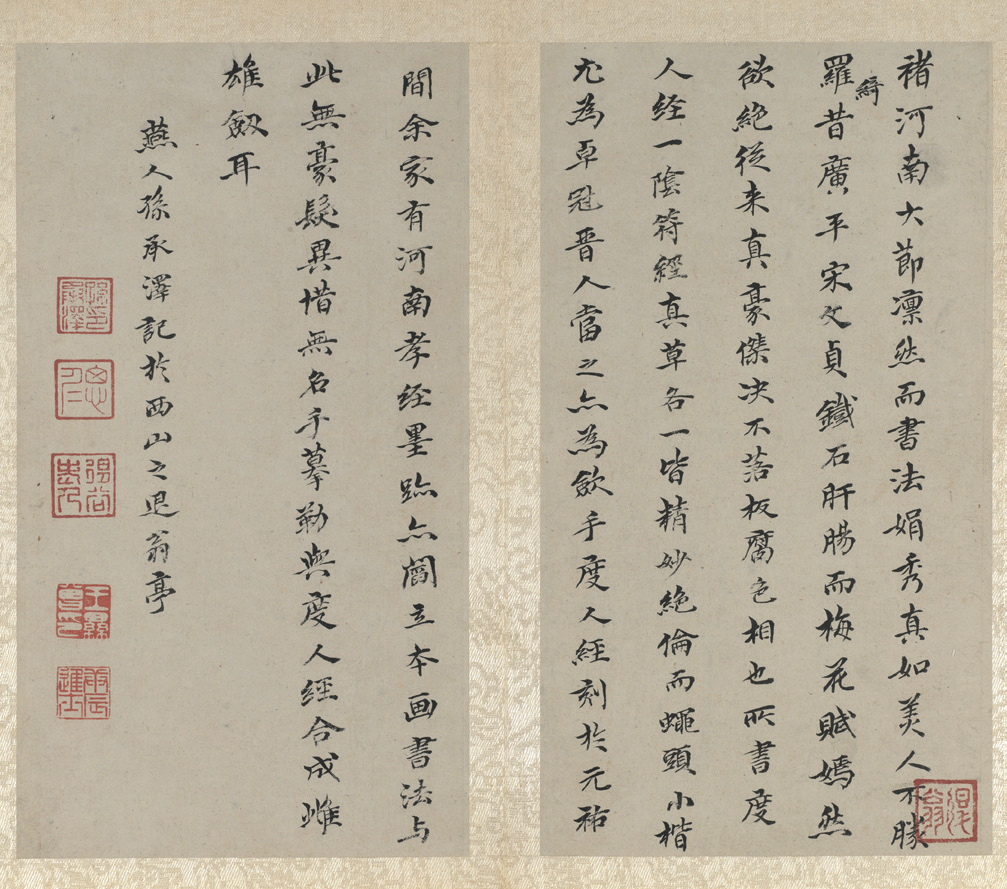 褚河南大節凛然而書法娟秀真如美人不勝
羅綺昔廣平宋文貞鐵石肝腸而梅花賦嫣然
欲絶從来真豪傑决不落板腐色相也所書度
人经一陰符經真草各一皆精妙絶倫而蠅頭小楷
尤為卓冠晋人當之亦為斂手度人經刻於元祐
間余家有河南孝经墨跡亦閻立本画書法与
此無豪髮異惜無名手摹勒與度人經合成雌
雄劔耳
燕人孫承澤記於西山之退翁亭
退翁
孫承澤印